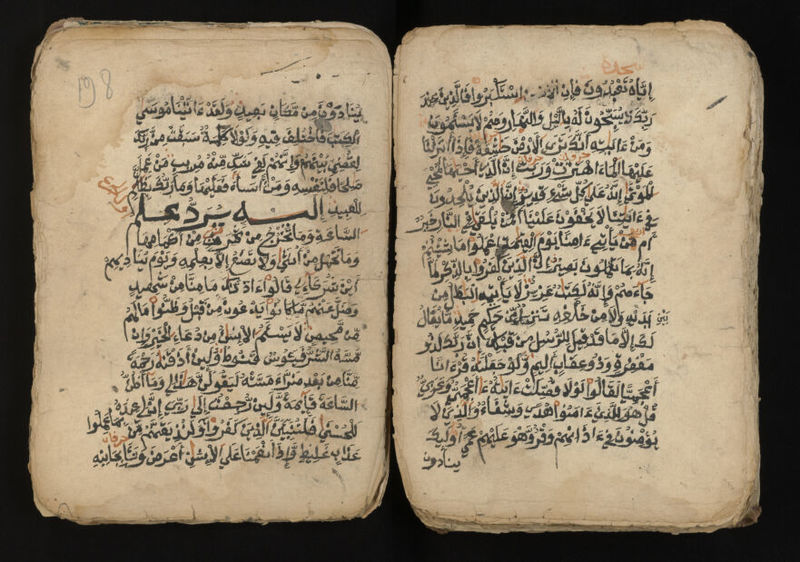 سجدة
إياه تعبدون فإن استكبروا فالذين عند
ربك يسبحون له باليل والنهار وهم لا يسئمون
ومن ءايته أنك ترى الأرض خشعة فإذا أنزلنا
عليها الماء اهتزت وربت إن الذي أحياها لمحي
الموتى إنه على كل شيء قدير إن الذين يلحدون
في ءايتنا لا يخفون علينا أفمن يلقى في النار خير
أم من يأتي ءامنا يوم القيمة اعملوا ما شيتم
إنه بما تعملون بصير إن الذين كفروا بالذكر لما
جاءهم وإنه لكتب عزيز لا يأتيه البطل من
بين يديه ولا من خلفه تنزيل من حكيم حميد ما يقال
لك إلا ما قد قيل للرسل من قبلك إن ربك لذو
مغفرة وذو عقاب اليم ولو جعلنه قرءانا
أعجميا لقالوا لولا فصلت ءايته ءاعجمي وعربي
قل هو للذين ءامنوا هدى وشفاء والذين لا
يؤمنون في ءاذانهم وقر وهو عليهم عمى أوليك
ينادون
198
ينادون من مكان بعيد ولقد ءاتينا موسى
الكتب فاختلف فيه ولولا كلمة سبقت من ربك
لقضي بينهم وإنهم لفي شك منه مريب من عمل
صلحا فلنفسه ومن أساء فعليها وما ربك بظلم
للعبيد إليه يرد علم
الساعة وما تخرج من ثمرت من أكمامها
وما تحمل من أنثى ولا تضع إلا بعلمه ويوم يناديهم
أين شركاءي قالوا ءاذنك ما منا من شهيد
وضل عنهم ما كانوا يدعون من قبل وظنوا ما لهم
من محيص لا يسئم الإنسن من دعاء الخير وإن
مسه الشر فيئوس قنوط ولين أذقنه رحمة
منا من بعد ضراء مسته ليقولن هذا لي وما أظن
الساعة قايمة ولين رجعت إلى ربي إن لي عنده
للحسنى فلننبين الذين كفروا بما عملوا ولنذيقنهم من
عذاب غليظ وإذا أنعمنا على الإنسن أعرض ونئا بجانبه